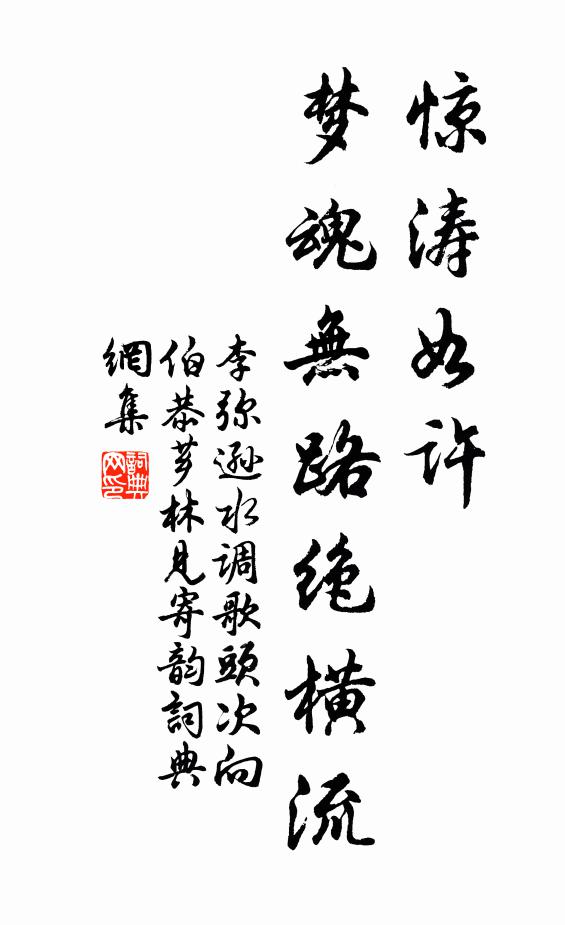 惊涛如许
梦魂無路绝横流
李弥遜水调歌頭次向
伯恭芗林見寄韵詞典
網集
詞典
网印